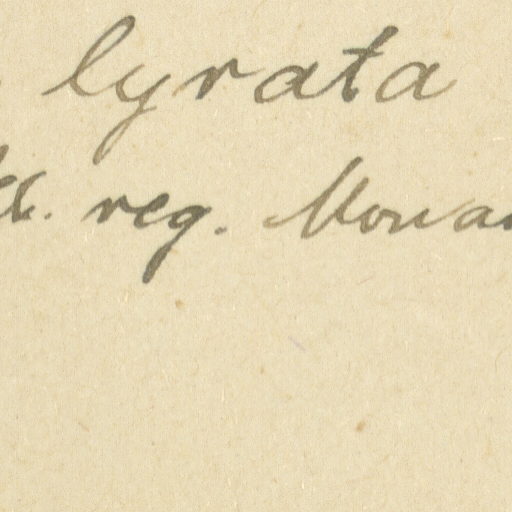 lyrata
reg. Monac